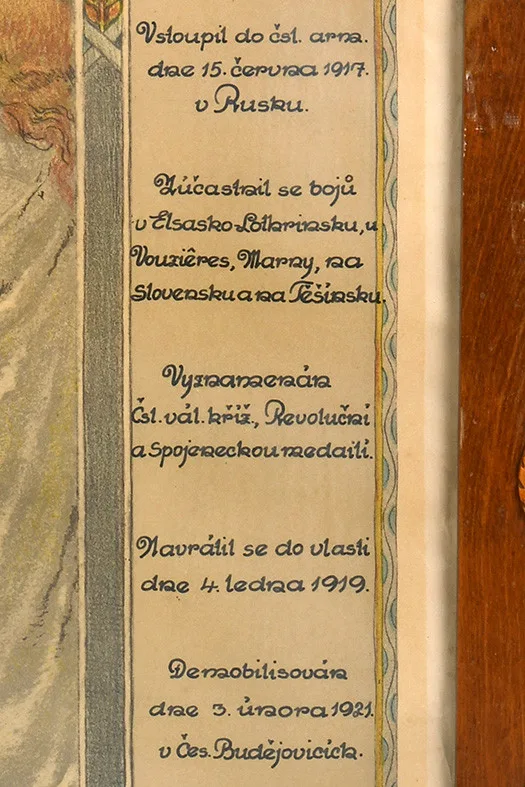 Vstoupil do čsl. arm.
dne 15. června 1917.
v Rusku.
Zúčastnil se bojů
v Elsasko-Lothrinsku, u
Vouzières, Marny, na
Slovensku a na Těšínsku.
Vyznamenán
Čsl. vál. kříž, Revoluční
a Spojeneckou medailí.
Navrátil se do vlasti
dne 4. ledna 1919.
Demobilisován
dne 3. února 1921.
v Čes. Budějovicích.